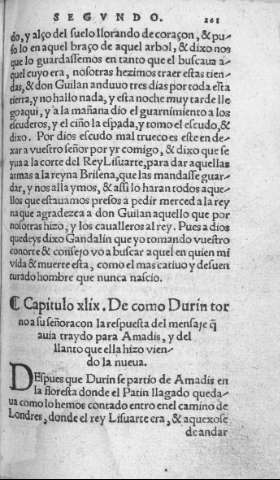 SEGVNDO. 101
do, y alço del suelo llorando de coraçon, & pu-
so lo en aquel braço de aquel arbol, & dixo nos
que lo guardassemos en tanto que el buscaua a-
quel cuyo era, nosotras hezimos traer estas tien-
das, & don Guilan anduuo tres dias por toda esta
tierra, y no hallo nada, y esta noche muy tarde lle
go aqui, y a la mañana dio el guarnimiento a los
escuderos, y el ciño la espada, y tomo el escudo, &
dixo. Por dios escudo mal trueco es este en de-
xar a vuestro señor por yr comigo, & dixo que se
yua a la corte del Rey Lisuarte, para dar aquellas
armas a la reyna Brisena, que las mandasse guar-
dar, y nos alla ymos, & assi lo haran todos aque-
llos que estauamos presos a pedir merced a la rey
na que agradezca a don Guilan aquello que por
nosotras hizo, y los caualleros al rey. Pues a dios
quedeys dixo Gandalin que yo tomando vuestro
conorte & consejo vo a buscar aquel en quien mi
vida & muerte esta, como el mas catiuo y desuen
turado hombre que nunca nascio.
¶ Capitulo xlix. De como Durin tor
no a su señora con la respuesta del mensaje q̃
auia traydo para Amadis, y del
llanto que ella hizo vien-
do la nueua.
DEspues que Durin se partio de Amadis en
la floresta donde el Patin llagado queda-
ua como lo hemos contado entro en el camino de
Londres, donde el rey Lisuarte era, & aquexose
de andar